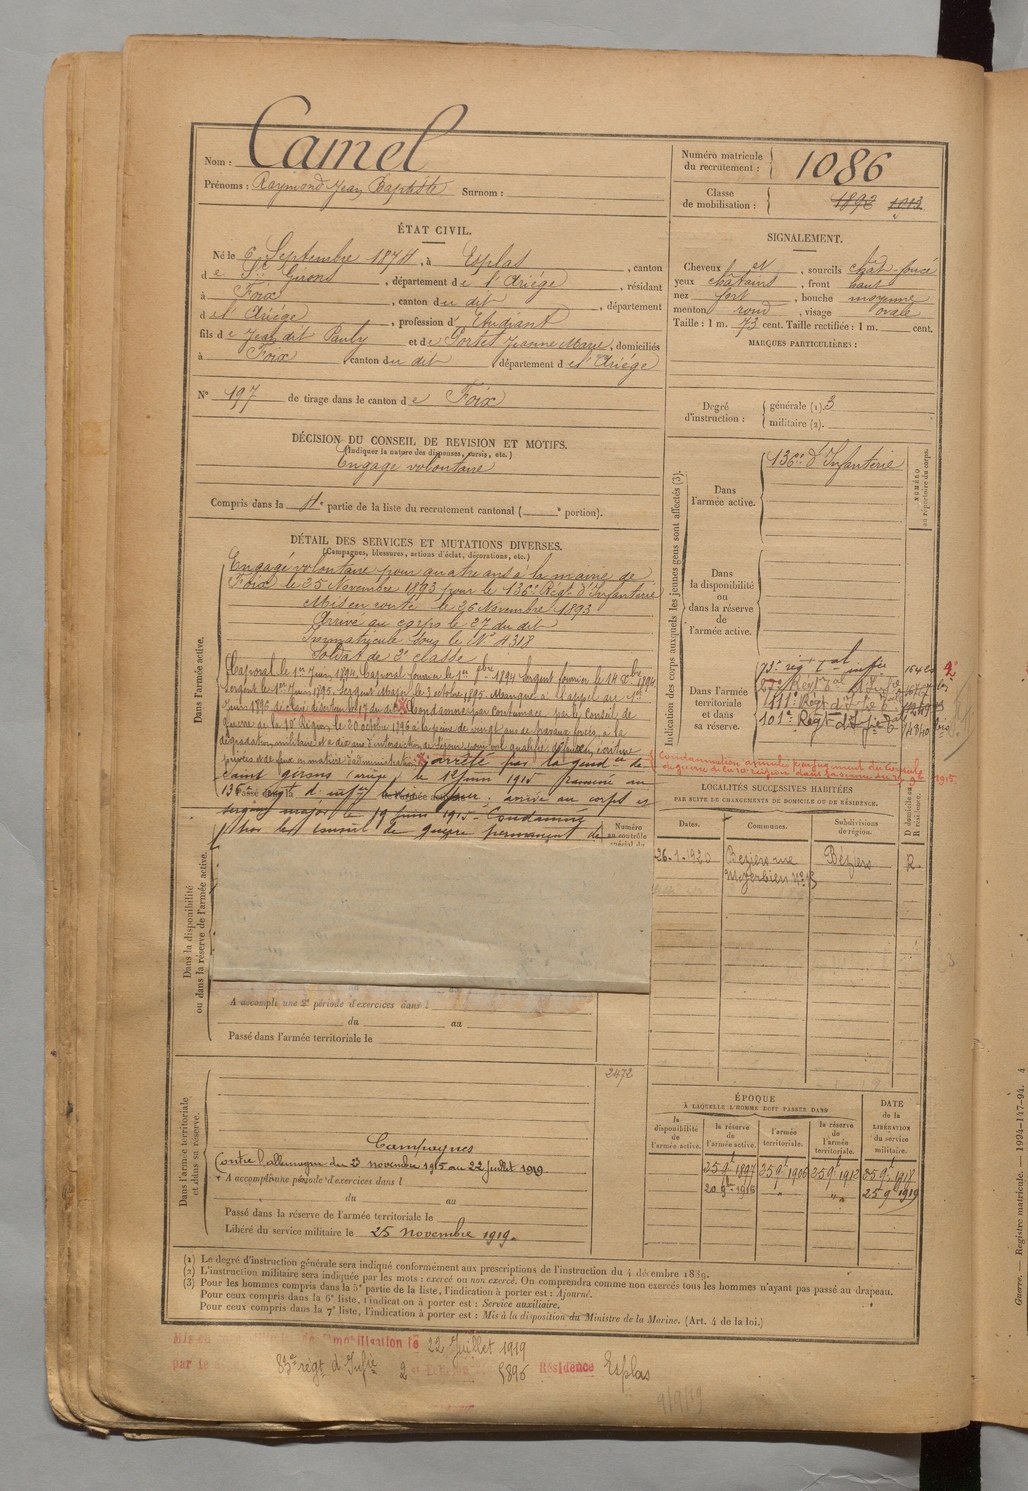 Nom : Camel
Prénoms : Raymond Jean Baptiste Surnom :
Numéro matricule du recrutement : 1086
Classe de mobilisation : 1892 1913
ÉTAT CIVIL.
Né le 6 Septembre 1874, à Esplas, canton
de St Girons, département de l'Ariège, résidant
à Foix, canton du dit, département
de l'Ariège, profession d'Etudiant
fils de Jean dit Pauly et de Portet Jeanne Marie, domiciliés
à Foix canton du dit département de l'Ariège
N° 197 de tirage dans le canton de Foix
SIGNALEMENT.
Cheveux et, sourcils chât. foncé
yeux châtains, front haut
nez fort, bouche moyenne
menton rond, visage ovale
Taille : 1 m. 73 cent. Taille rectifiée : 1 m. cent.
MARQUES PARTICULIÈRES :
Degré d'instruction : générale (1). 3
militaire (2).
DÉCISION DU CONSEIL DE REVISION ET MOTIFS.
(Indiquer la nature des dispenses, sursis, etc.)
Engagé volontaire
Compris dans la 4e partie de la liste du recrutement cantonal ( e portion).
DÉTAIL DES SERVICES ET MUTATIONS DIVERSES.
(Campagnes, blessures, actions d'éclat, décorations, etc.)
Dans l'armée active.
Engagé volontaire pour quatre ans à la mairie de
Foix le 25 Novembre 1893 pour le 136e Régt d'Infanterie
Mis en route le 26 Novembre 1893
Arrivé au corps le 27 du dit
Immatriculé sous le N° 4318
Soldat de 2e classe
Caporal le 1er Juin 1894. Caporal fourrier le 1er 1894 Sergent fourrier le 14 Xbre 1894
Sergent le 1er Juin 1895. Sergent Major le 3 octobre 1895. Manque à l'appel du 1er
Juin 1895 déclaré déserteur le 17 du dit Condamné par contumace par le Conseil de
guerre de la 10e Région le 20 octobre à la peine de vingt ans de travaux forcés, à la
dégradation militaire et à dix ans d'interdiction de séjour pour vol qualifié
et de faux en matière d'administration arrêté par la gendie de
Saint Girons (Ariège) le 12 juin 1915 ramené au
136e régt d'infie arrivé au corps et
Passé dans la de l'armée active
sergent major le 19 juin 1915. Condamné
par le conseil de guerre permanent de
Numéro au contrôle spécial du
Indication des corps auxquels les jeunes gens sont affectés (3).
Dans l'armée active.
136e d'Infanterie
NUMÉRO au répertoire du corps.
Dans la disponibilité ou dans la réserve de l'armée active.
Dans l'armée territoriale et dans sa réserve.
Condamnation annulée par jugement du Conseil
de guerre de la 10e région dans sa séance du 1915
LOCALITÉS SUCCESSIVES HABITÉES
PAR SUITE DE CHANGEMENTS DE DOMICILE OU DE RÉSIDENCE.
Dates. Communes. Subdivisions de région. D domicile ou R résidence.
26-1-1920 Béziers rue Béziers R.
Dans la disponibilité ou dans la réserve de l'armée active.
A accompli une 2e période d'exercices dans :
du au
Passé dans l'armée territoriale le
2472
Dans l'armée territoriale et dans sa réserve.
Campagnes
Contre l'allemagne du 23 novembre 1915 au 22 juillet 1919
A accompli une période d'exercices dans l
du au
Passé dans la réserve de l'armée territoriale le
Libéré du service militaire le 25 novembre 1919.
ÉPOQUE
À LAQUELLE L'HOMME DOIT PASSER DANS
la disponibilité de l'armée active. la réserve de l'armée active. l'armée territoriale. la réserve de l'armée territoriale. DATE de la LIBÉRATION du service militaire.
25 9bre 1897 25 9bre 1906 25 9bre 1912 25 9bre 1917
20 9bre 1916 " " " 25 9bre 1919
(1) Le degré d'instruction générale sera indiqué conformément aux prescriptions de l'instruction du 4 décembre 1889.
(2) L'instruction militaire sera indiquée par les mots : exercé ou non exercé. On comprendra comme non exercés tous les hommes n'ayant pas passé au drapeau.
(3) Pour les hommes compris dans la 5e partie de la liste, l'indication à porter est : Ajourné.
Pour ceux compris dans la 6e liste, l'indication à porter est : Service auxiliaire.
Pour ceux compris dans la 7e liste, l'indication à porter est : Mis à la disposition du Ministre de la Marine. (Art. 4 de la loi.)
Mis en congé de démobilisation le 22 Juillet 1919
par le 83e régt d'Infie 2 5896 Résidence Esplas
9/9/19
Guerre. — Registre matricule. — 1924-147-94. 4